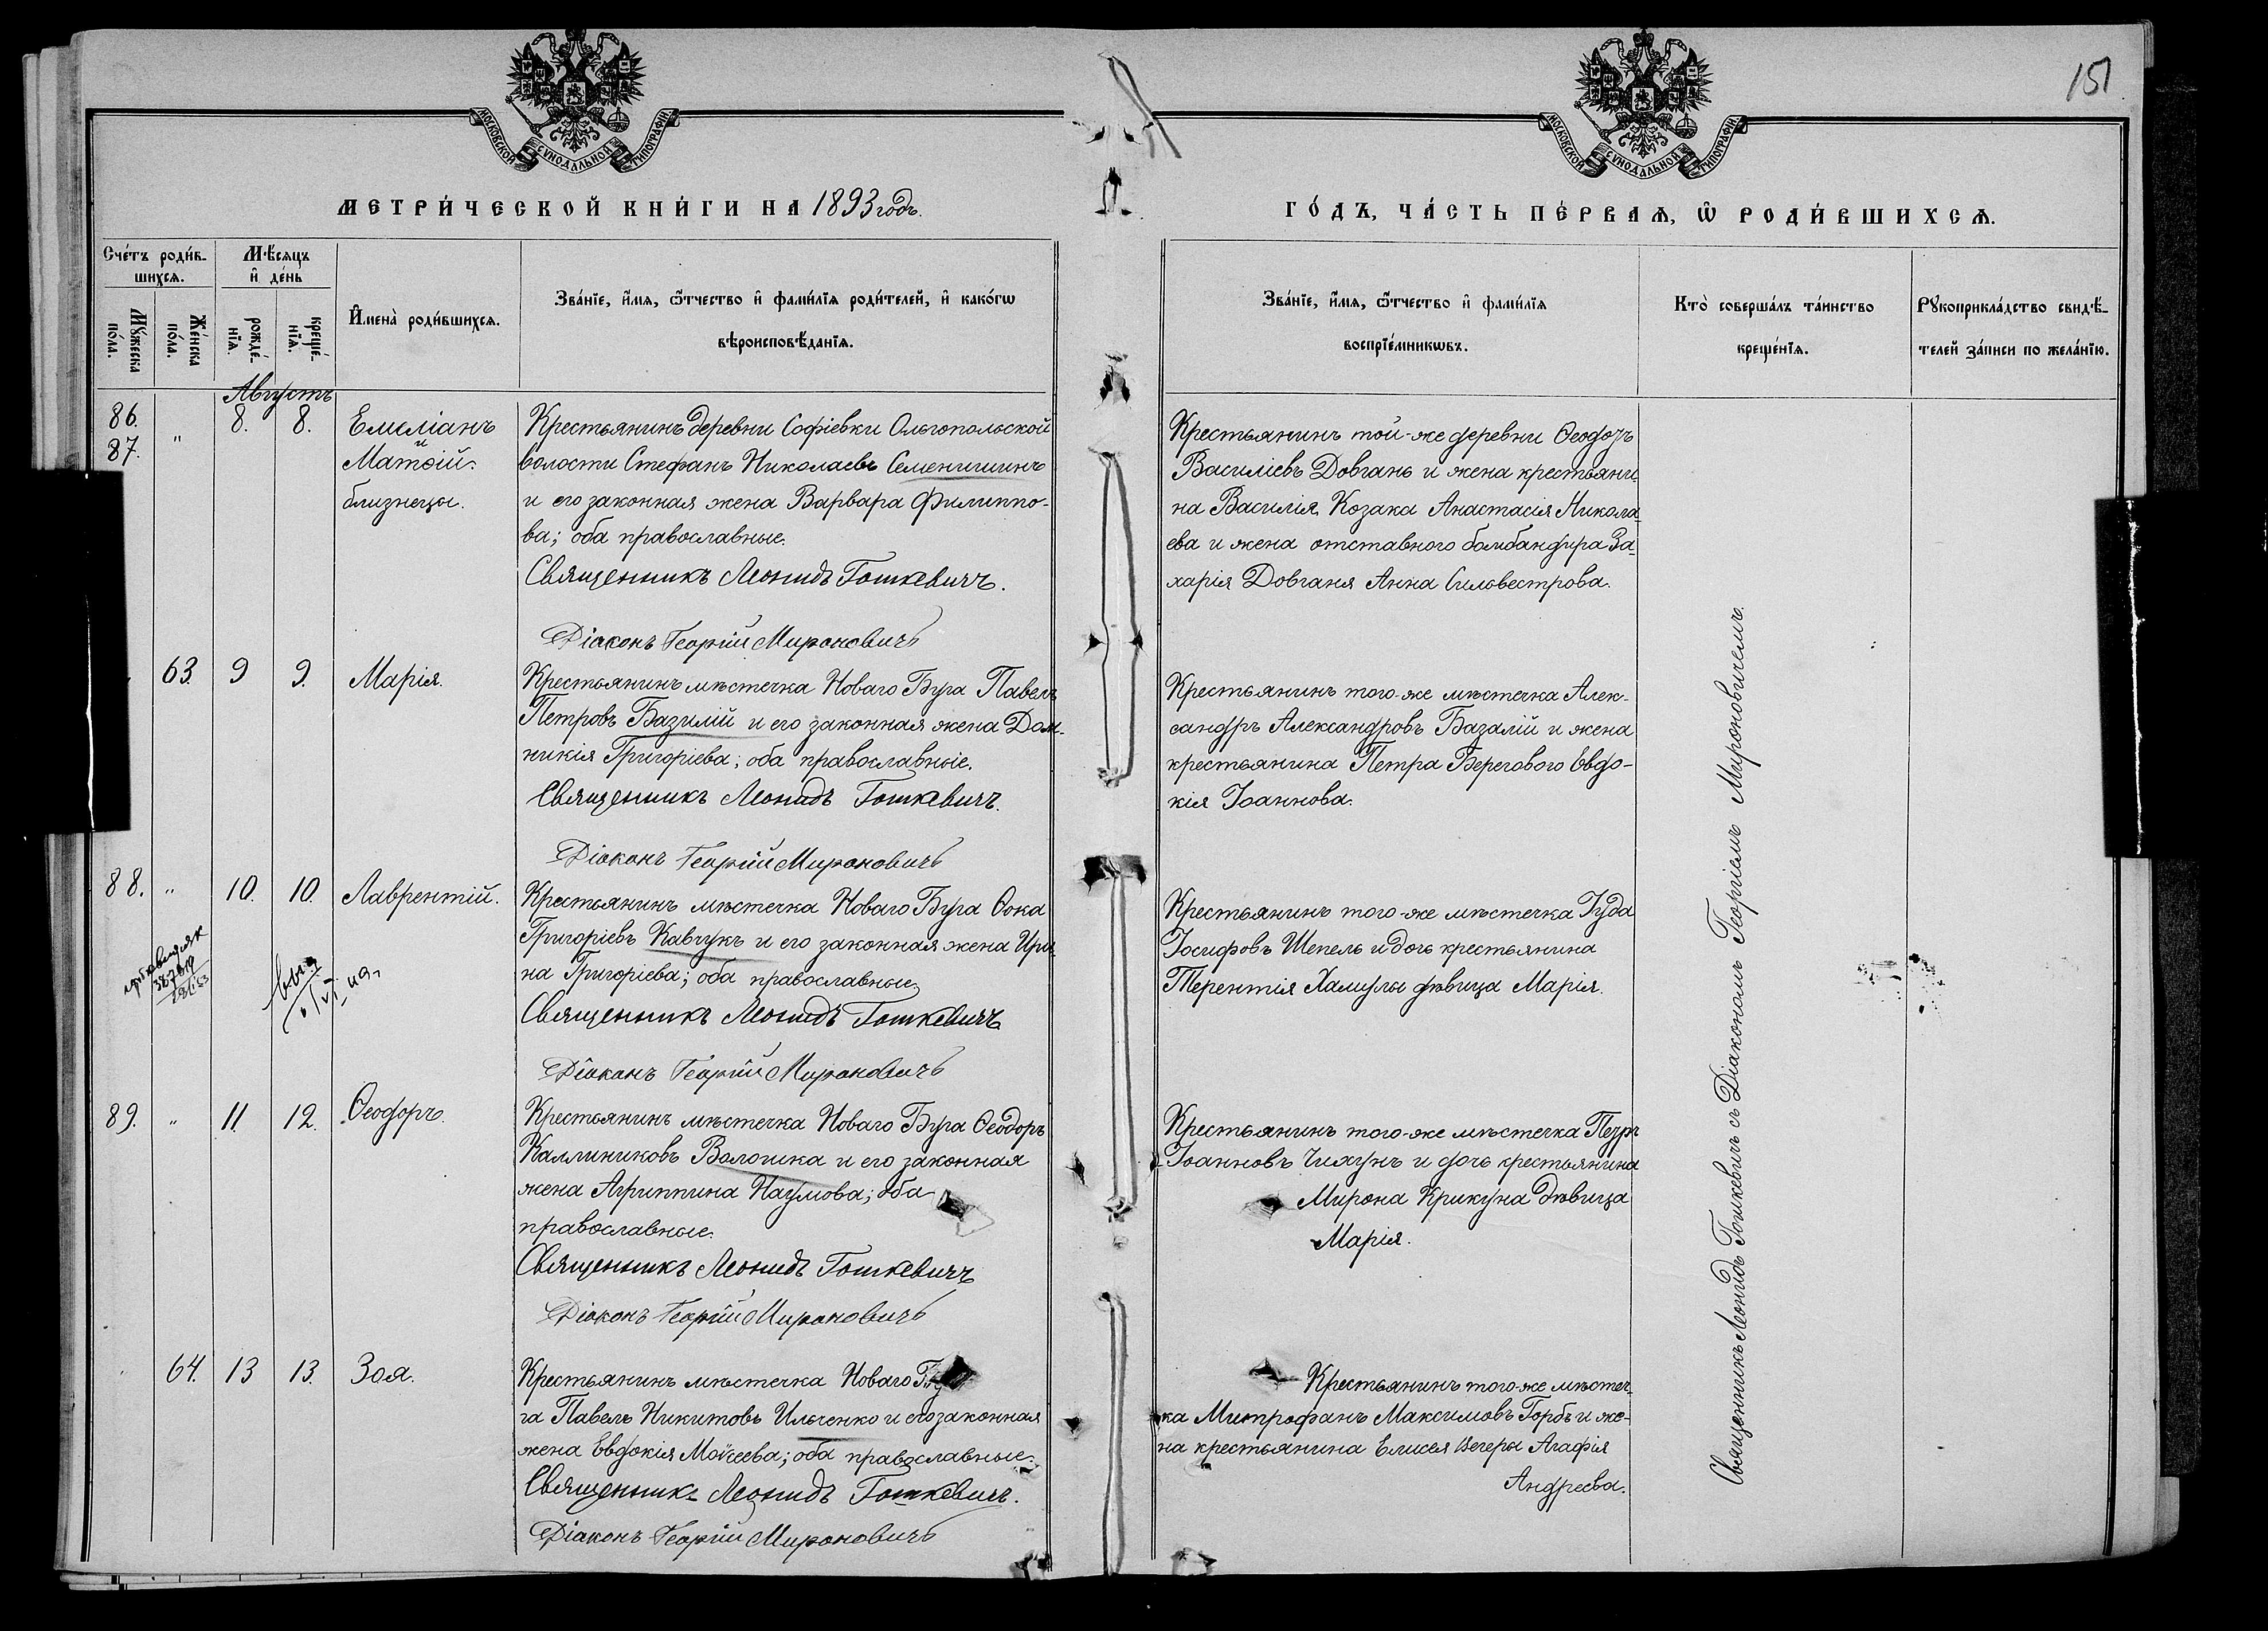 151
МОСКОВСКОЙ СѴНОДАЛЬНОЙ ТИПОГРАФІИ
МОСКОВСКОЙ СѴНОДАЛЬНОЙ ТИПОГРАФІИ
МЕТРИ́ЧЕСКОЙ КНИ́ГИ НА 1893 годъ.
ГО́ДЪ, ЧА́СТЬ ПЕ́РВАѦ, Ѡ҆ РОДИ́ВШИХСѦ.
Сче́тъ роди́в-
шихсѧ.
Мѣ́сѧцъ
и҆ де́нь
Мꙋ́жеска
по́ла.
Же́нска
по́ла.
рожде́-
нїѧ.
креще́-
нїѧ.
И҆мена̀ роди́вшихсѧ.
Зва́нїе, и҆́мѧ, ѻ҆́тчество и҆ фами́лїѧ роди́телей, и҆ како́гѡ
вѣроисповѣ́данїѧ.
Зва́нїе, и҆́мѧ, ѻ҆́тчество и҆ фами́лїѧ
воспрїе́мникѡвъ.
Кто̀ соверша́лъ та́инство
креще́нїѧ.
Рꙋкоприкла́дство свидѣ́-
телей за́писи по жела́нїю.
Августъ
86.
87.
"
8.
8.
Емиліанъ
и
Матѳій.
близнецы.
Крестьянинъ деревни Софіевки Ольгопольской
волости Стефанъ Николаевъ Семенишинъ
и его законная жена Варвара Филиппо-
ва; оба православные.
Священникъ Леонидъ Гошкевичъ.
Діаконъ Георгій Мироновичъ
Крестьянинъ той-же деревни Ѳеодоръ
Василіевъ Довгань и жена крестьяни-
на Василія Козака Анастасія Никола-
ева и жена отставного бомбандира За-
харія Довганя Анна Сильвестрова.
63.
9
9.
Марія.
Крестьянинъ мѣстечка Новаго Буга Павелъ
Петровъ Базилій и его законная жена Дом-
никія Григоріева; оба православные.
Священникъ Леонидъ Гошкевичъ.
Діаконъ Георгій Мироновичъ
Крестьянинъ того-же мѣстечка Алек-
сандръ Александровъ Базалій и жена
крестьянина Петра Берегового Евдо-
кія Іоаннова.
88.
"
10.
10.
Лаврентій.
Крестьянинъ мѣстечка Новаго Буга Ѳока
Григоріевъ Кавчукъ и его законная жена Ири-
на Григоріева; оба православные.
Священникъ Леонидъ Гошкевичъ
Діаконъ Георгій Мироновичъ
Крестьянинъ того-же мѣстечка Іуда
Іосифовъ Шепель и дочь крестьянина
Терентія Хамулы дѣвица Марія.
89.
"
11.
12.
Ѳеодоръ.
Крестьянинъ мѣстечка Новаго Буга Ѳеодоръ
Каллиниковъ Волошка и его законная
жена Агриппина Наумова; оба
православные.
Священникъ Леонидъ Гошкевичъ
Діаконъ Георгій Мироновичъ
Крестьянинъ того-же мѣстечка Петръ
Іоанновъ Чихунъ и дочь крестьянина
Мирона Крикуна дѣвица
Марія.
64.
13
13.
Зоя.
Крестьянинъ мѣстечка Новаго Бу-
га Павелъ Никитовъ Ильченко и его законная
жена Евдокія Моисеева; оба православные.
Священникъ Леонидъ Гошкевичъ.
Діаконъ Георгій Мироновичъ
Крестьянинъ того-же мѣстеч-
ка Митрофанъ Максимовъ Горбъ и же-
на крестьянина Елисея Вегеры Агафія
Андреева.
Священникъ Леонидъ Гошкевичъ съ Діакономъ Георгіемъ Мироновичемъ.